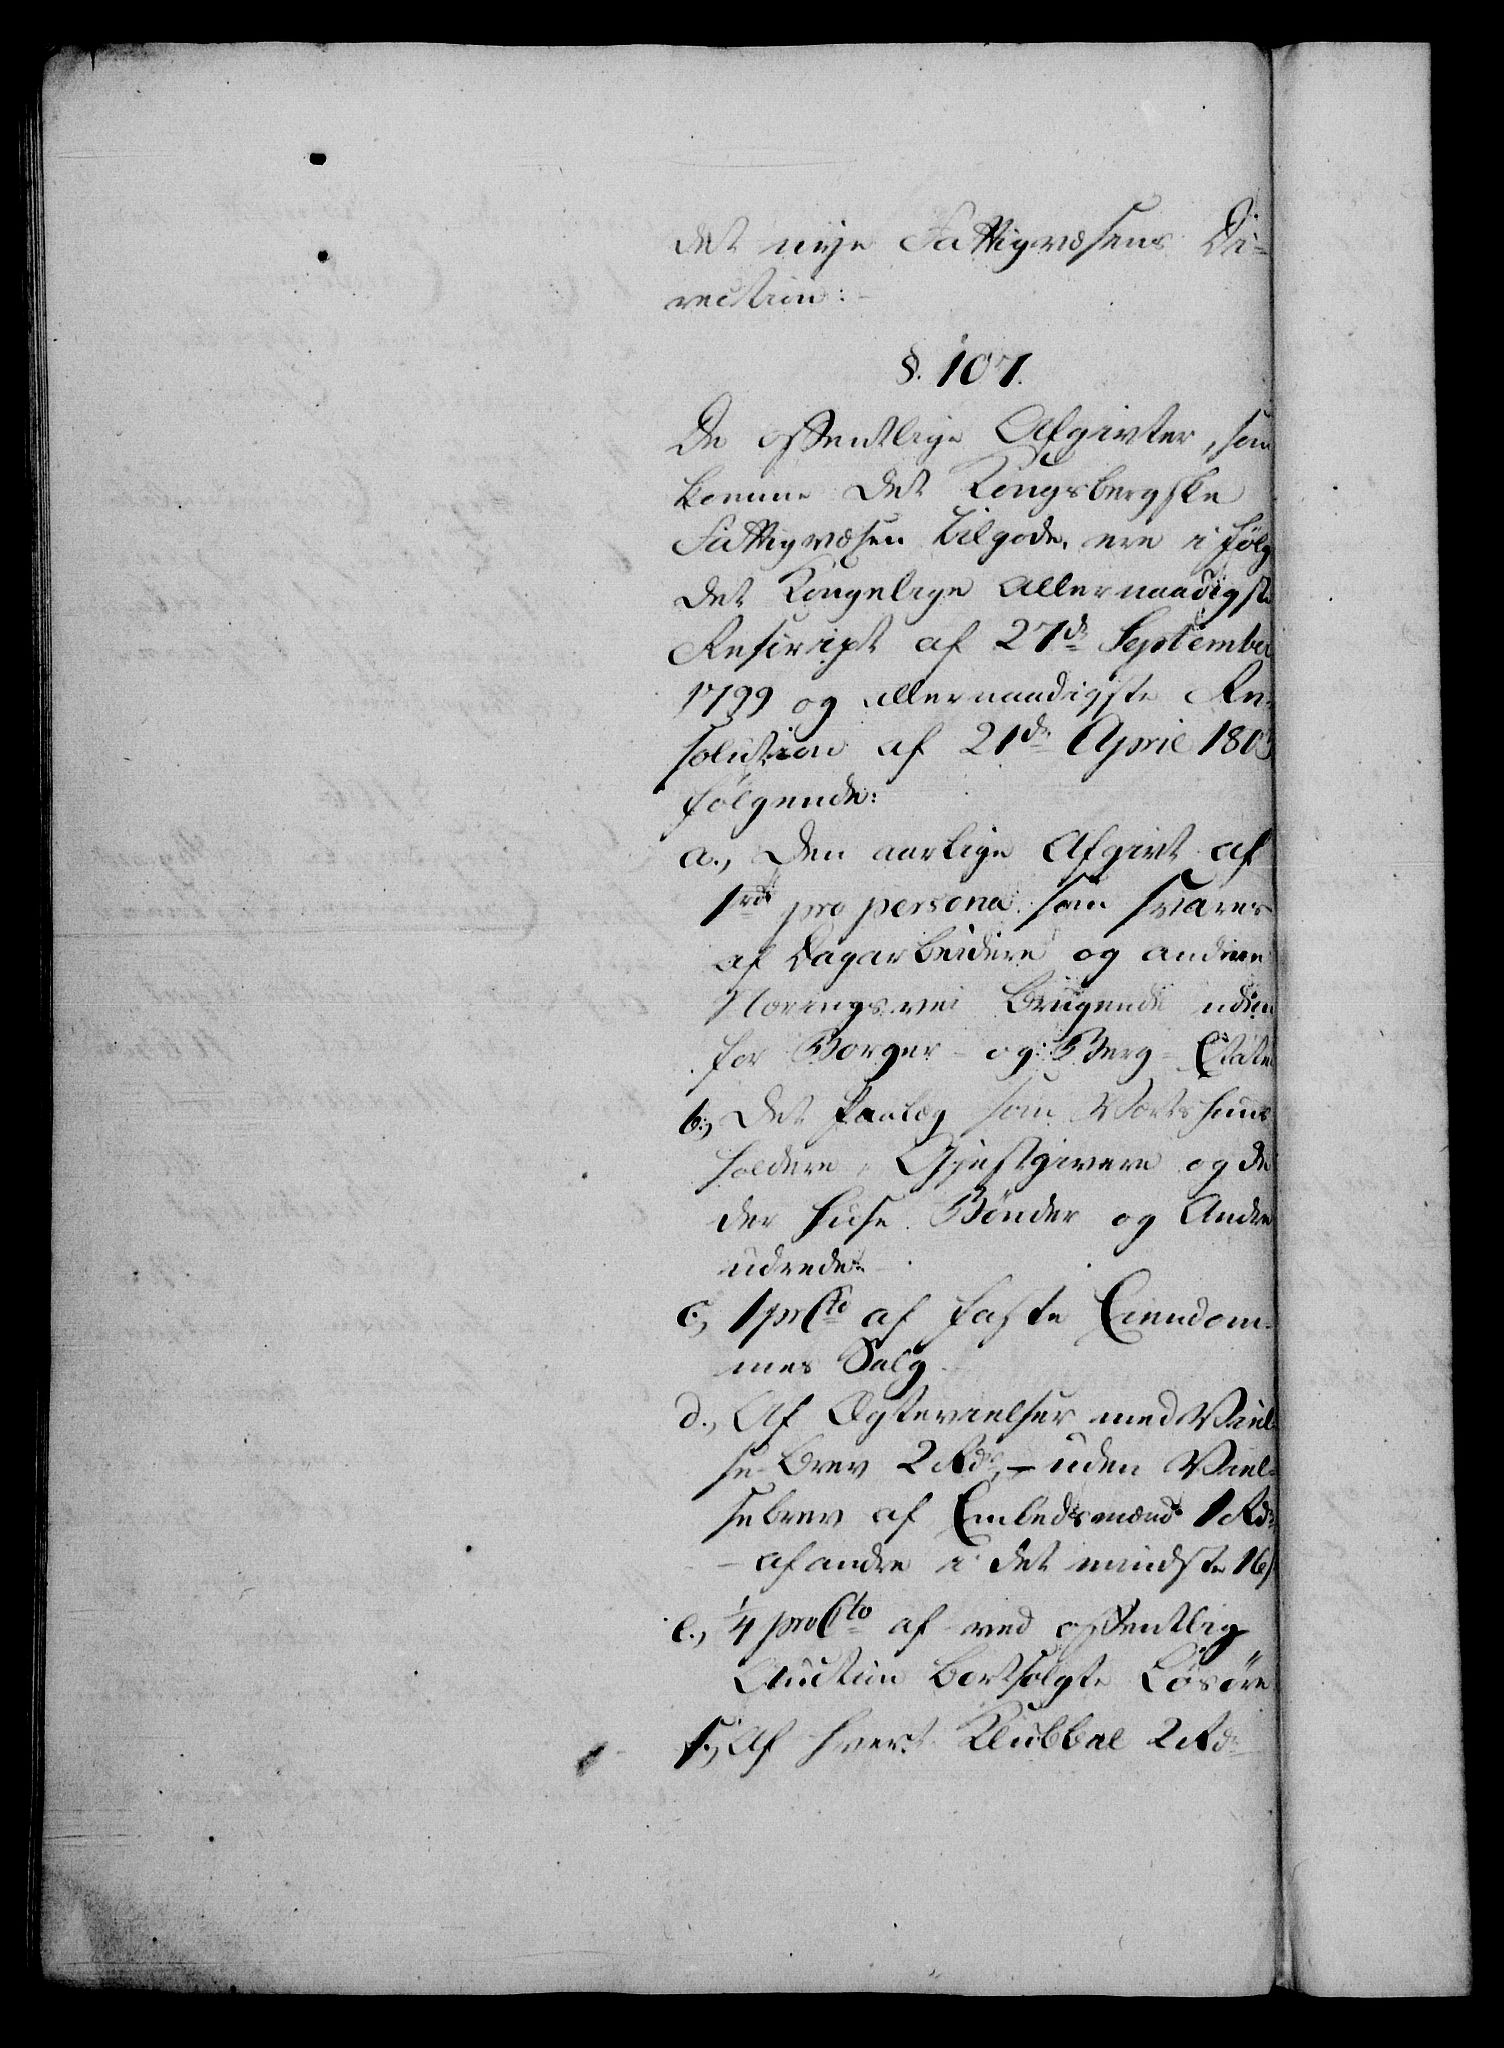 det nye Fattigvæsens Di-
rection:
§. 107.
De offentlige Afgivter, som
komme det Kongsbergske
Fattigvæsen tilgode, ere i følg
det Kongelige allernaadigste
Rescript af 27de September
1799 og allernaadigste Re-
solution af 21de April 1803
følgende:
a., Den aarlige Afgivt af
1rd pro persona som svares
af Dagarbeidere og andre
Næringsvei brugende uden
for Borger- og Berg-Etaten
b., Det Paalæg som Vertshuus
holdere, Gjestgivere og de
der huse Bønder og Andre
udrede.
c., 1 prCto af faste Eiendom-
mes Salg
d., Af Ægtevielser med Viel-
se-brev 2 Rd, - uden Viel-
sebrev af Embedsmænd 1 Rd
- af andre i det mindste 16
e., 1/4 proCto af ved offentlig
Auction bortsolgte Løsøre
f., Af hvert Klubbal 2 Rd